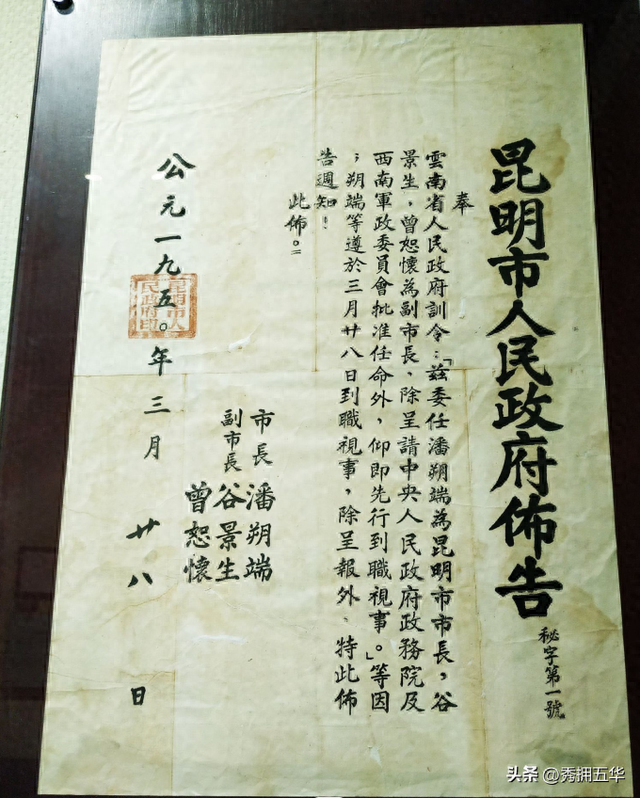 昆明市人民政府佈告
秘字第一號
奉
雲南省人民政府訓令：「茲委任潘朔端為昆明市市長，谷
景生，曾恕懷為副市長，除呈請中央人民政府政務院及
西南軍政委員會批准任命外，仰即先行到職視事。」等因
；朔端等遵於三月廿八日到職視事，除呈報外、特此佈
告週知！
此佈。
市長 潘朔端
副市長 谷景生
曾恕懷
公元一九五〇年三月廿八日
昆明市人民政府印
头条 @秀拥五华